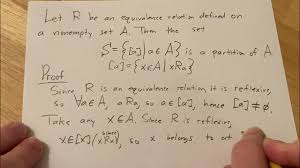 Let R be an equivalence relation defined on
a nonempty set A. Then the set
S = {[a] | a ∈ A} is a partition of A
[a] = {x ∈ A | x R a}
Proof
Since R is an equivalence relation, it is reflexive,
so ∀a∈A, aRa, so a∈[a], hence [a] ≠ ∅.
Take any x∈A. Since R is reflexive,
x∈[x] (since xRx), so x belongs to at